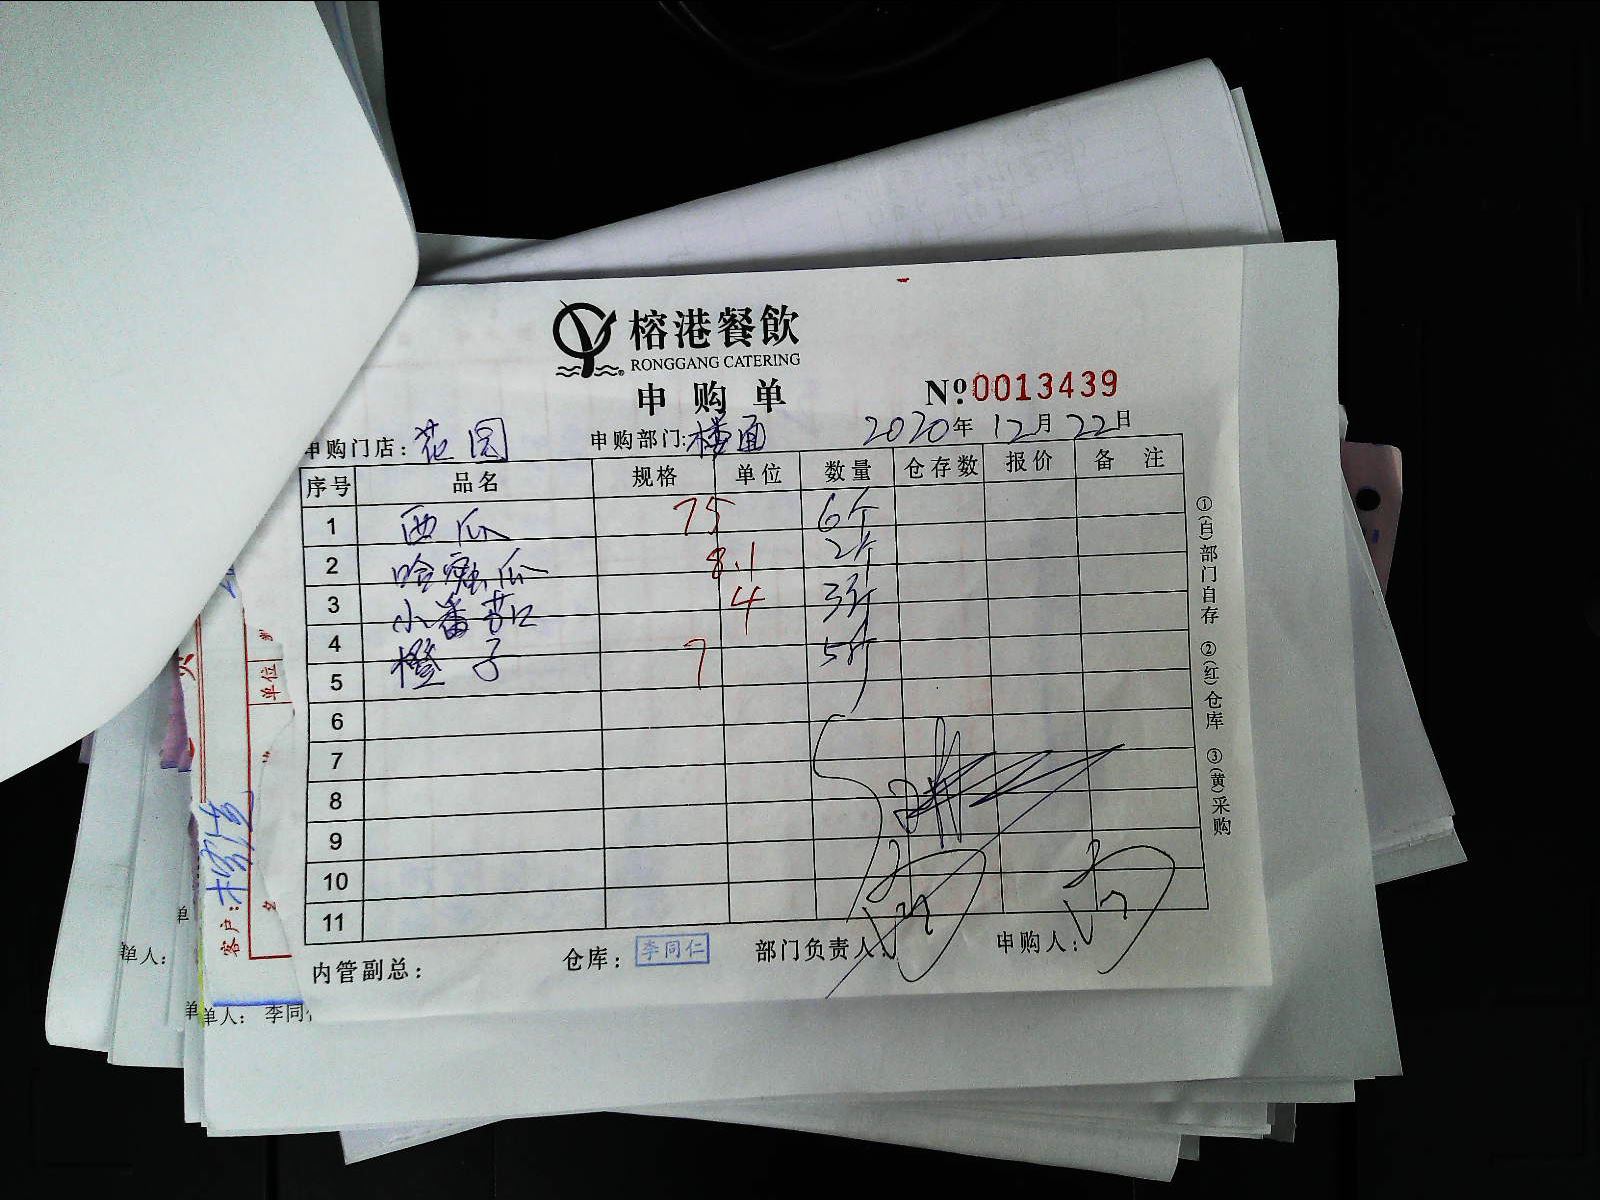 榕港餐飲
RONGGANG CATERING
申购单
№ 0013439
申购门店：花园 申购部门：楼面 2020年12月22日
序号 品名 规格 单位 数量 仓存数 报价 备注
1 西瓜 75 6个
2 哈密瓜 8.1 2个
3 小番茄 4 3斤
4 橙子 7 5斤
5
6
7
8
9
10
11
内管副总： 仓库：李同仁 部门负责人： 申购人：
①(白)部门自存 ②(红)仓库 ③(黄)采购
单位
客户：
单人：
单人： 李同